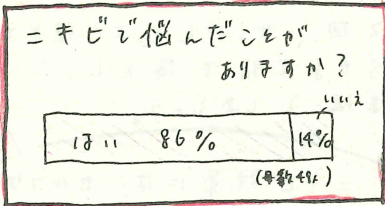 ニキビで悩んだことが
ありますか？
いいえ
はい 86% 14%
(母数49人)